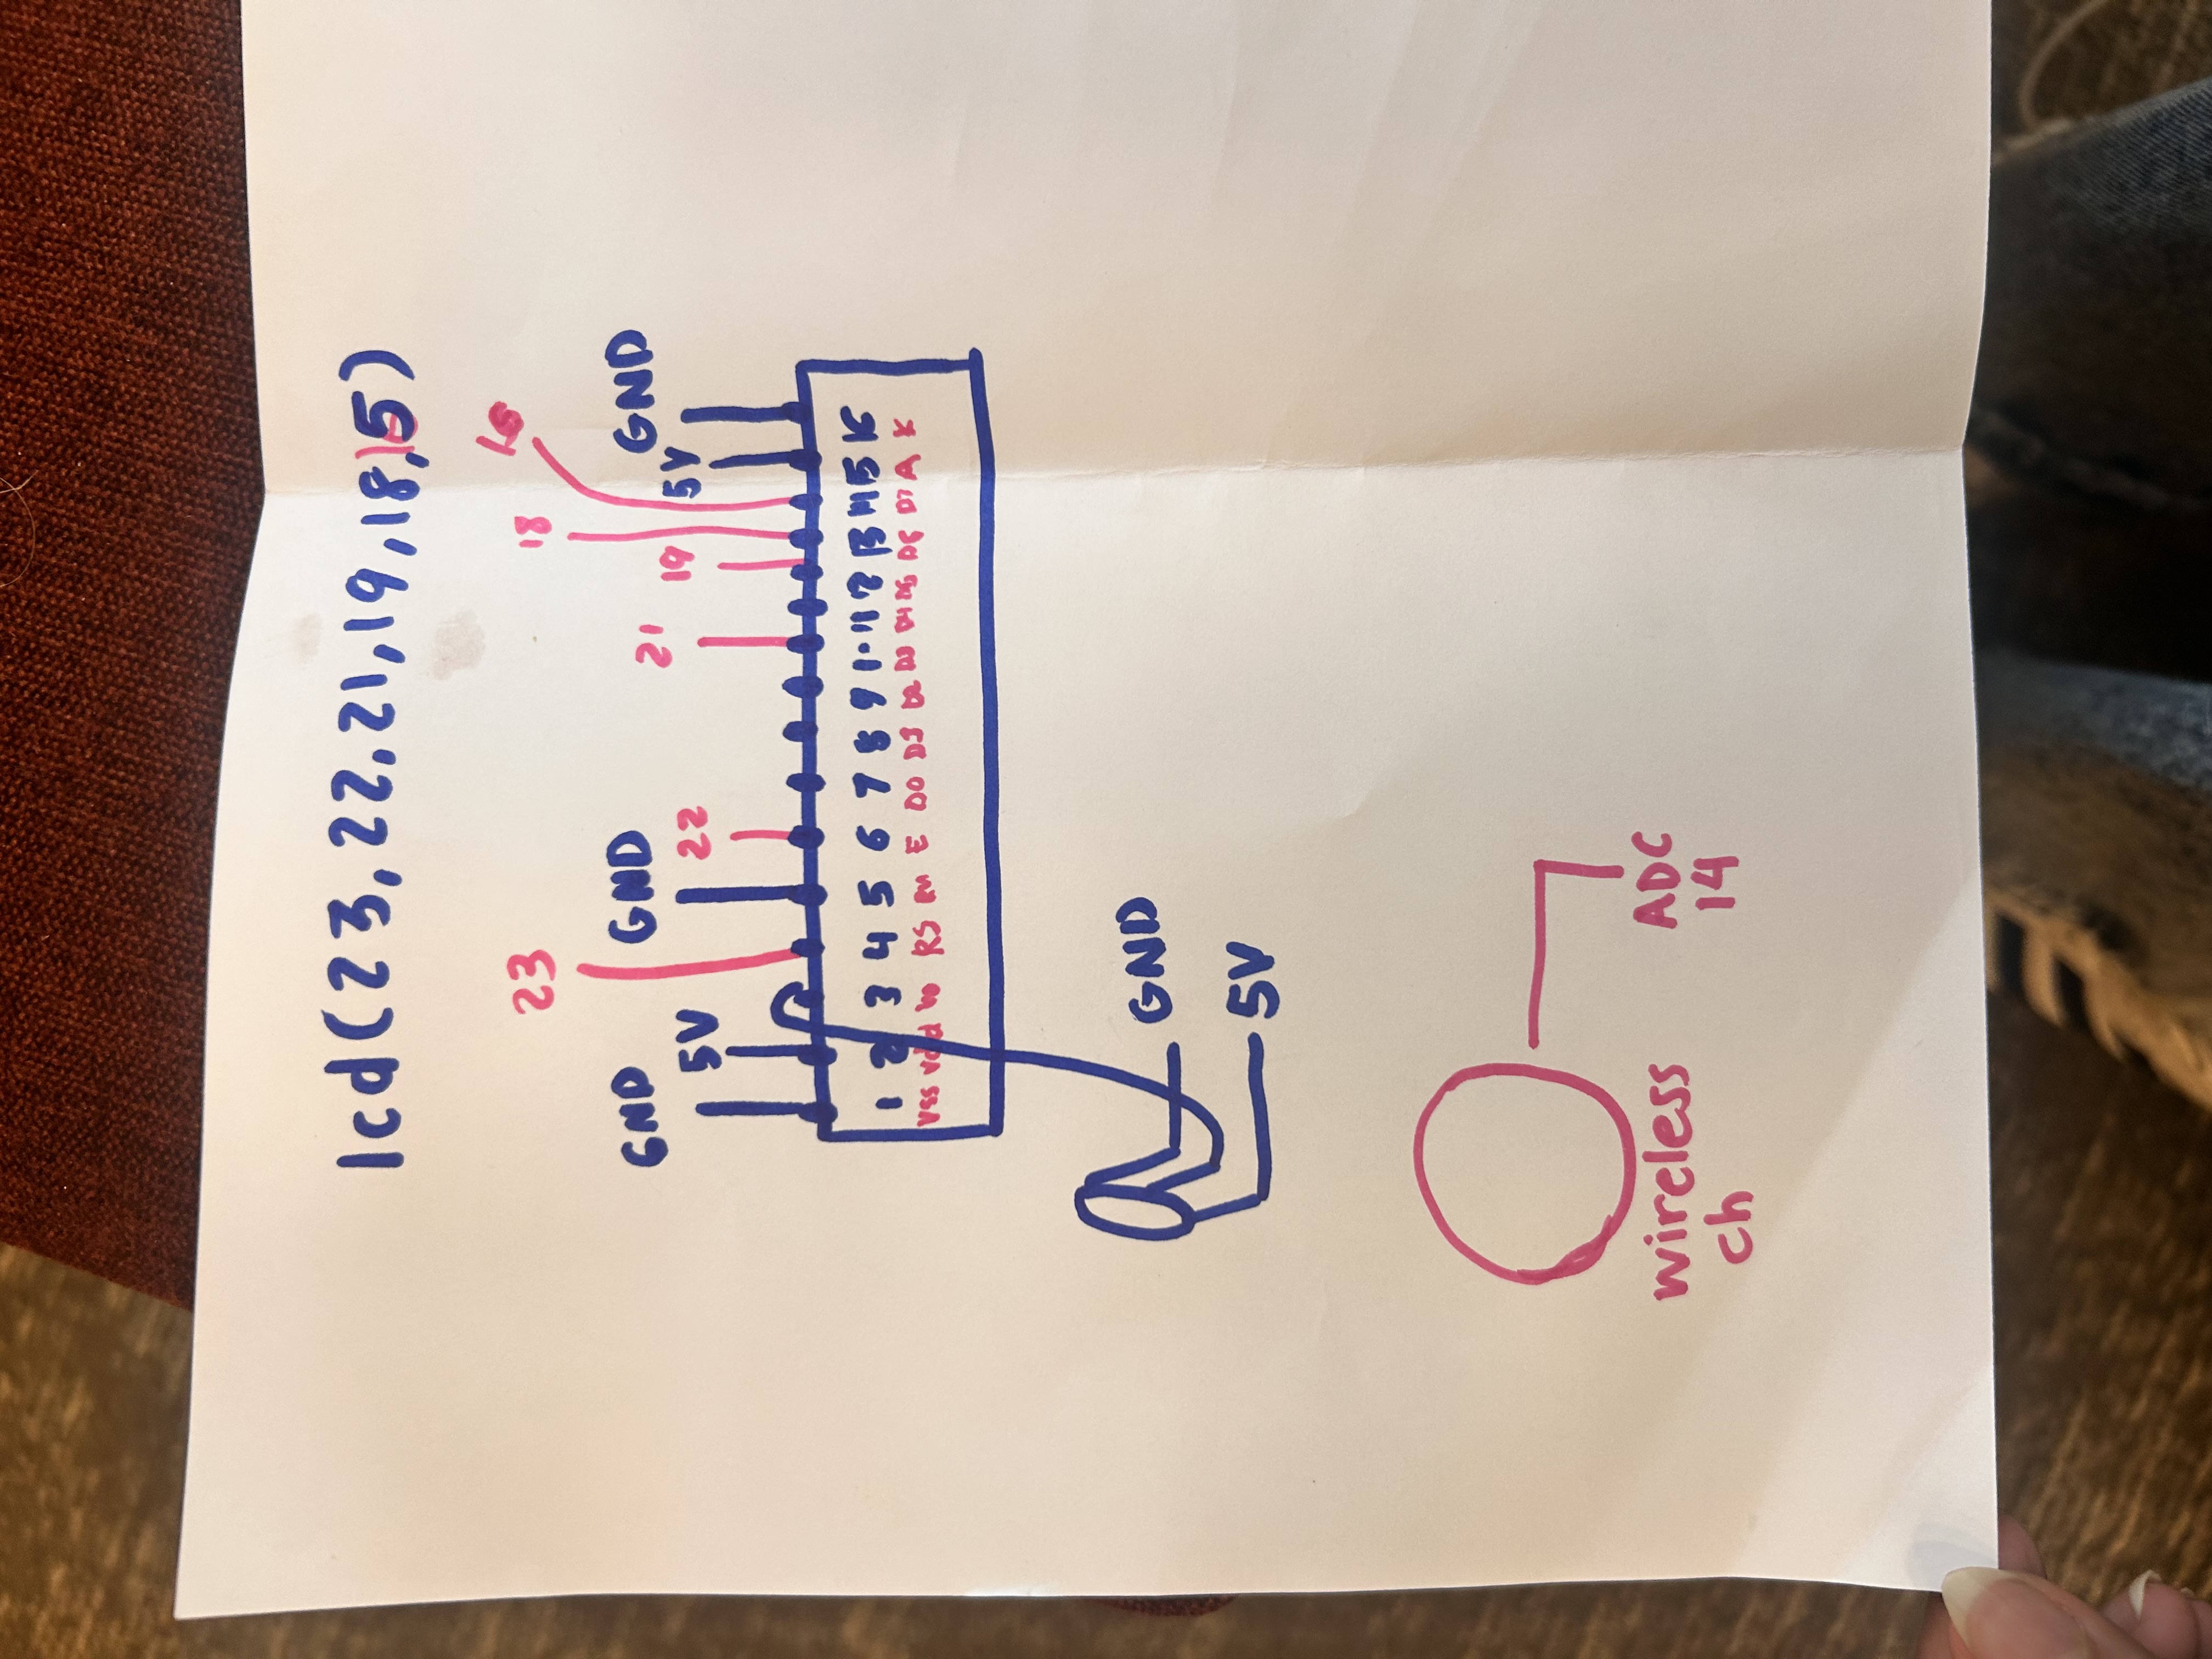 lcd(23,22,21,19,18,5)
23 18
GND GND 21 GND
5V 22 19 5V
1 2 3 4 5 6 7 8 9 10 11 12 13 14 15 16
Vss Vdd Vo RS E D0 D2 D3 D4 D6 D7 A K
GND
5V
wireless ADC
ch 14